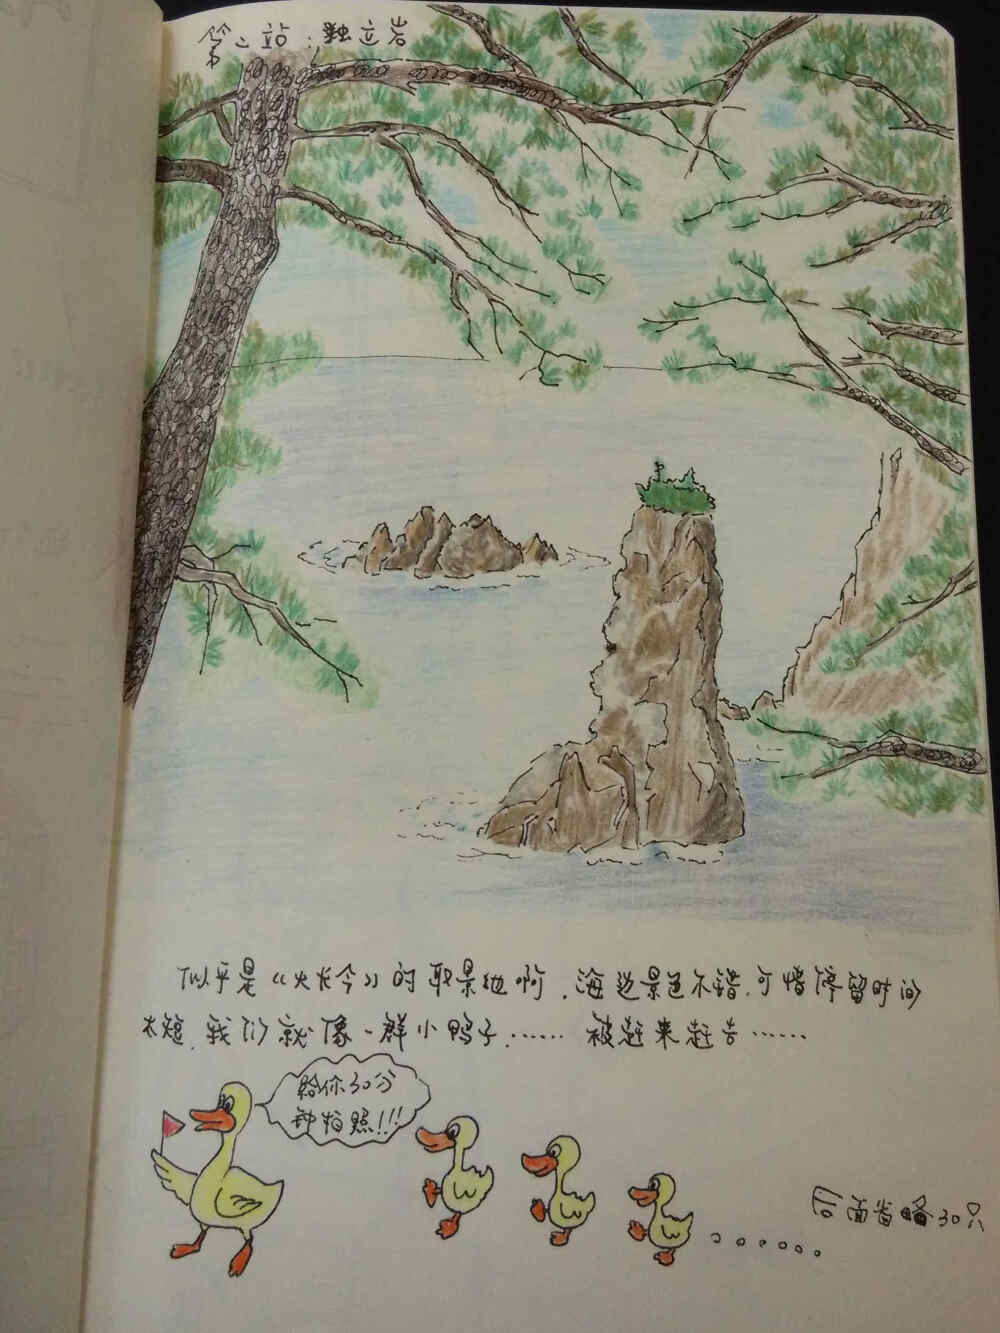 第二站：独立岩
似乎是《大长今》的取景地啊，海边景色不错，可惜停留时间
太短，我们就像一群小鸭子，…… 被赶来赶去……
给你30分
钟拍照！！！
后面省略30只